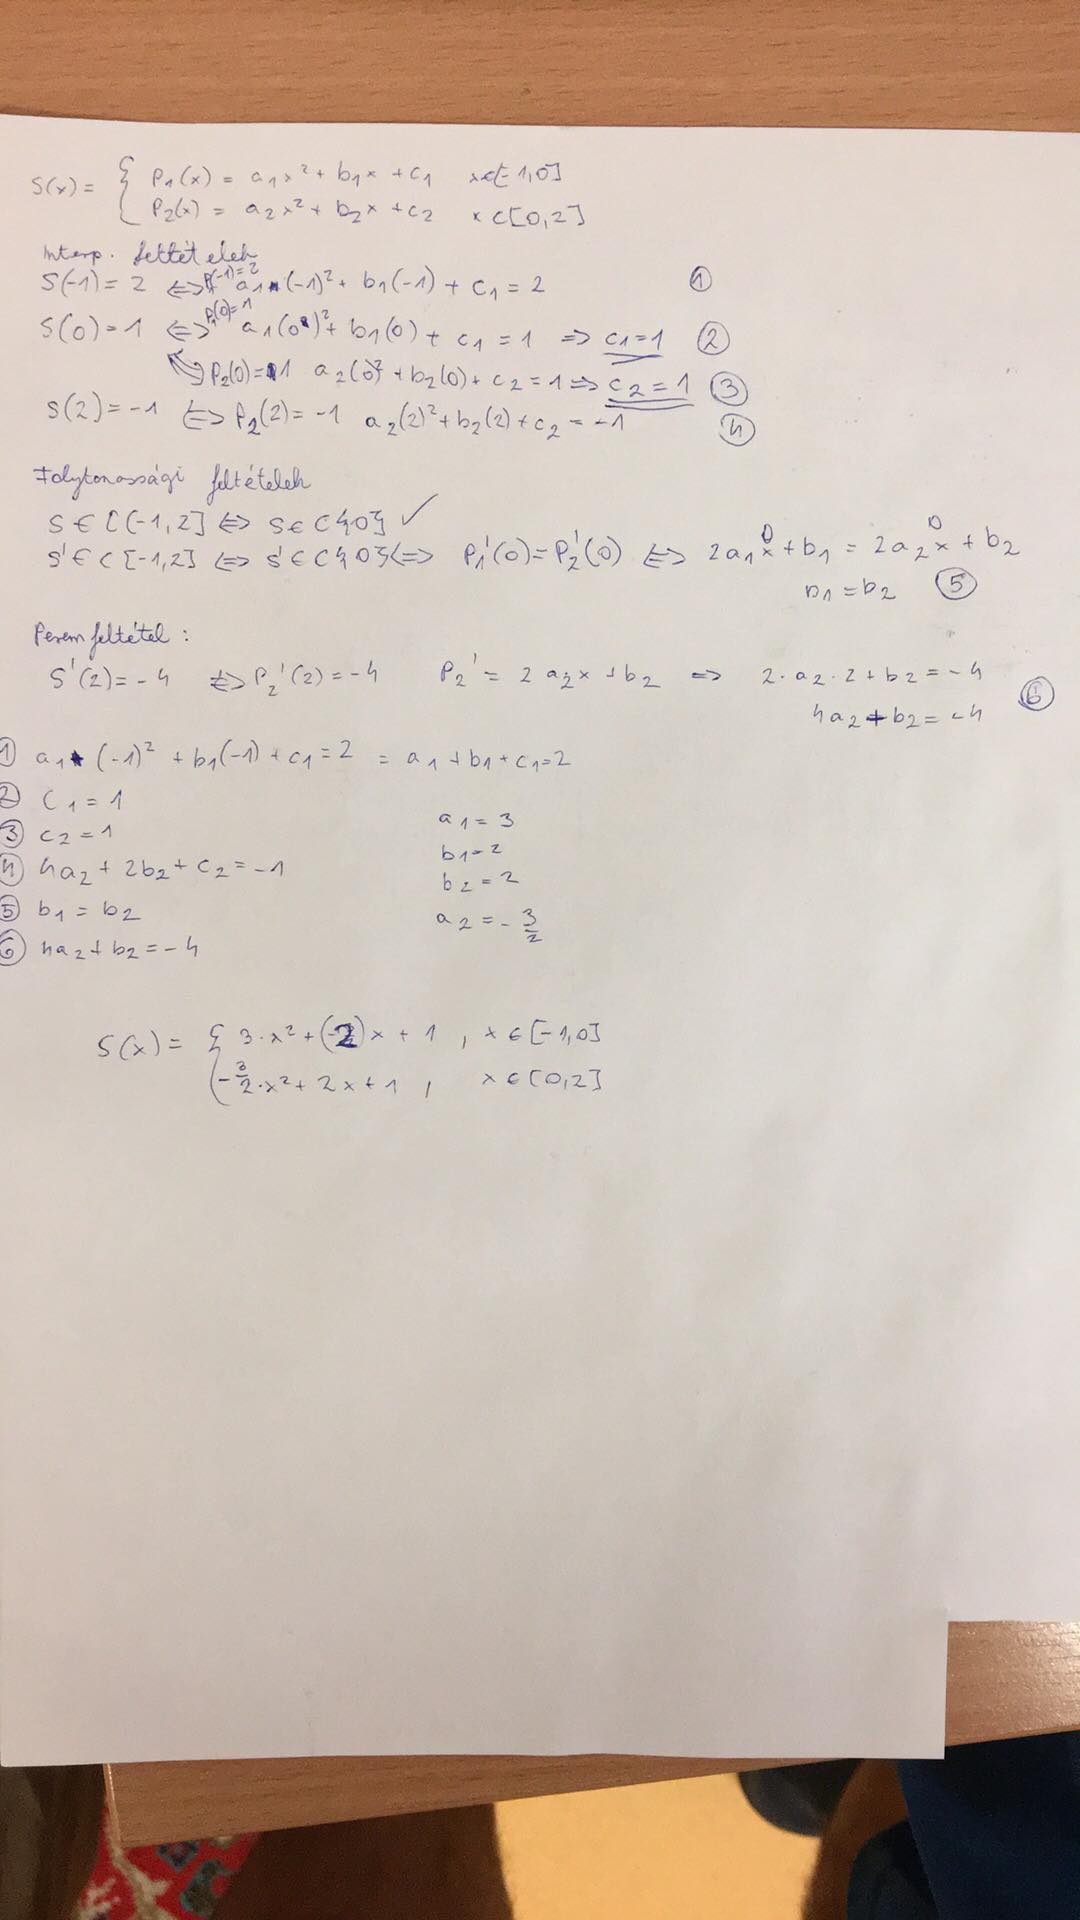 S(x) = { P1(x) = a1x² + b1x + c1 x∈[-1,0]
P2(x) = a2x² + b2x + c2 x∈[0,2]
Interp. feltételek
S(-1) = 2 ⇔ P1(-1)=2 a1·(-1)² + b1(-1) + c1 = 2 ①
S(0) = 1 ⇔ P1(0)=1 a1(0)² + b1(0) + c1 = 1 ⇒ c1=1 ②
P2(0)=1 a2(0)² + b2(0) + c2 = 1 ⇒ c2=1 ③
S(2) = -1 ⇔ P2(2) = -1 a2(2)² + b2(2) + c2 = -1 ④
Folytonossági feltételek
S ∈ C[-1,2] ⇔ S ∈ C{0} ✓
S' ∈ C[-1,2] ⇔ S' ∈ C{0} ⇔ P1'(0) = P2'(0) ⇔ 2a1x⁰ + b1 = 2a2x⁰ + b2
b1 = b2 ⑤
Perem feltétel:
S'(2) = -4 ⇔ P2'(2) = -4 P2' = 2a2x + b2 ⇒ 2·a2·2 + b2 = -4
4a2 + b2 = -4 ⑥
① a1·(-1)² + b1(-1) + c1 = 2 = a1 + b1 + c1 = 2
② c1 = 1
③ c2 = 1
④ 4a2 + 2b2 + c2 = -1
⑤ b1 = b2
⑥ 4a2 + b2 = -4
a1 = 3
b1 = 2
b2 = 2
a2 = -3/2
S(x) = { 3·x² + (-2)x + 1, x ∈ [-1,0]
-3/2·x² + 2x + 1, x ∈ [0,2]